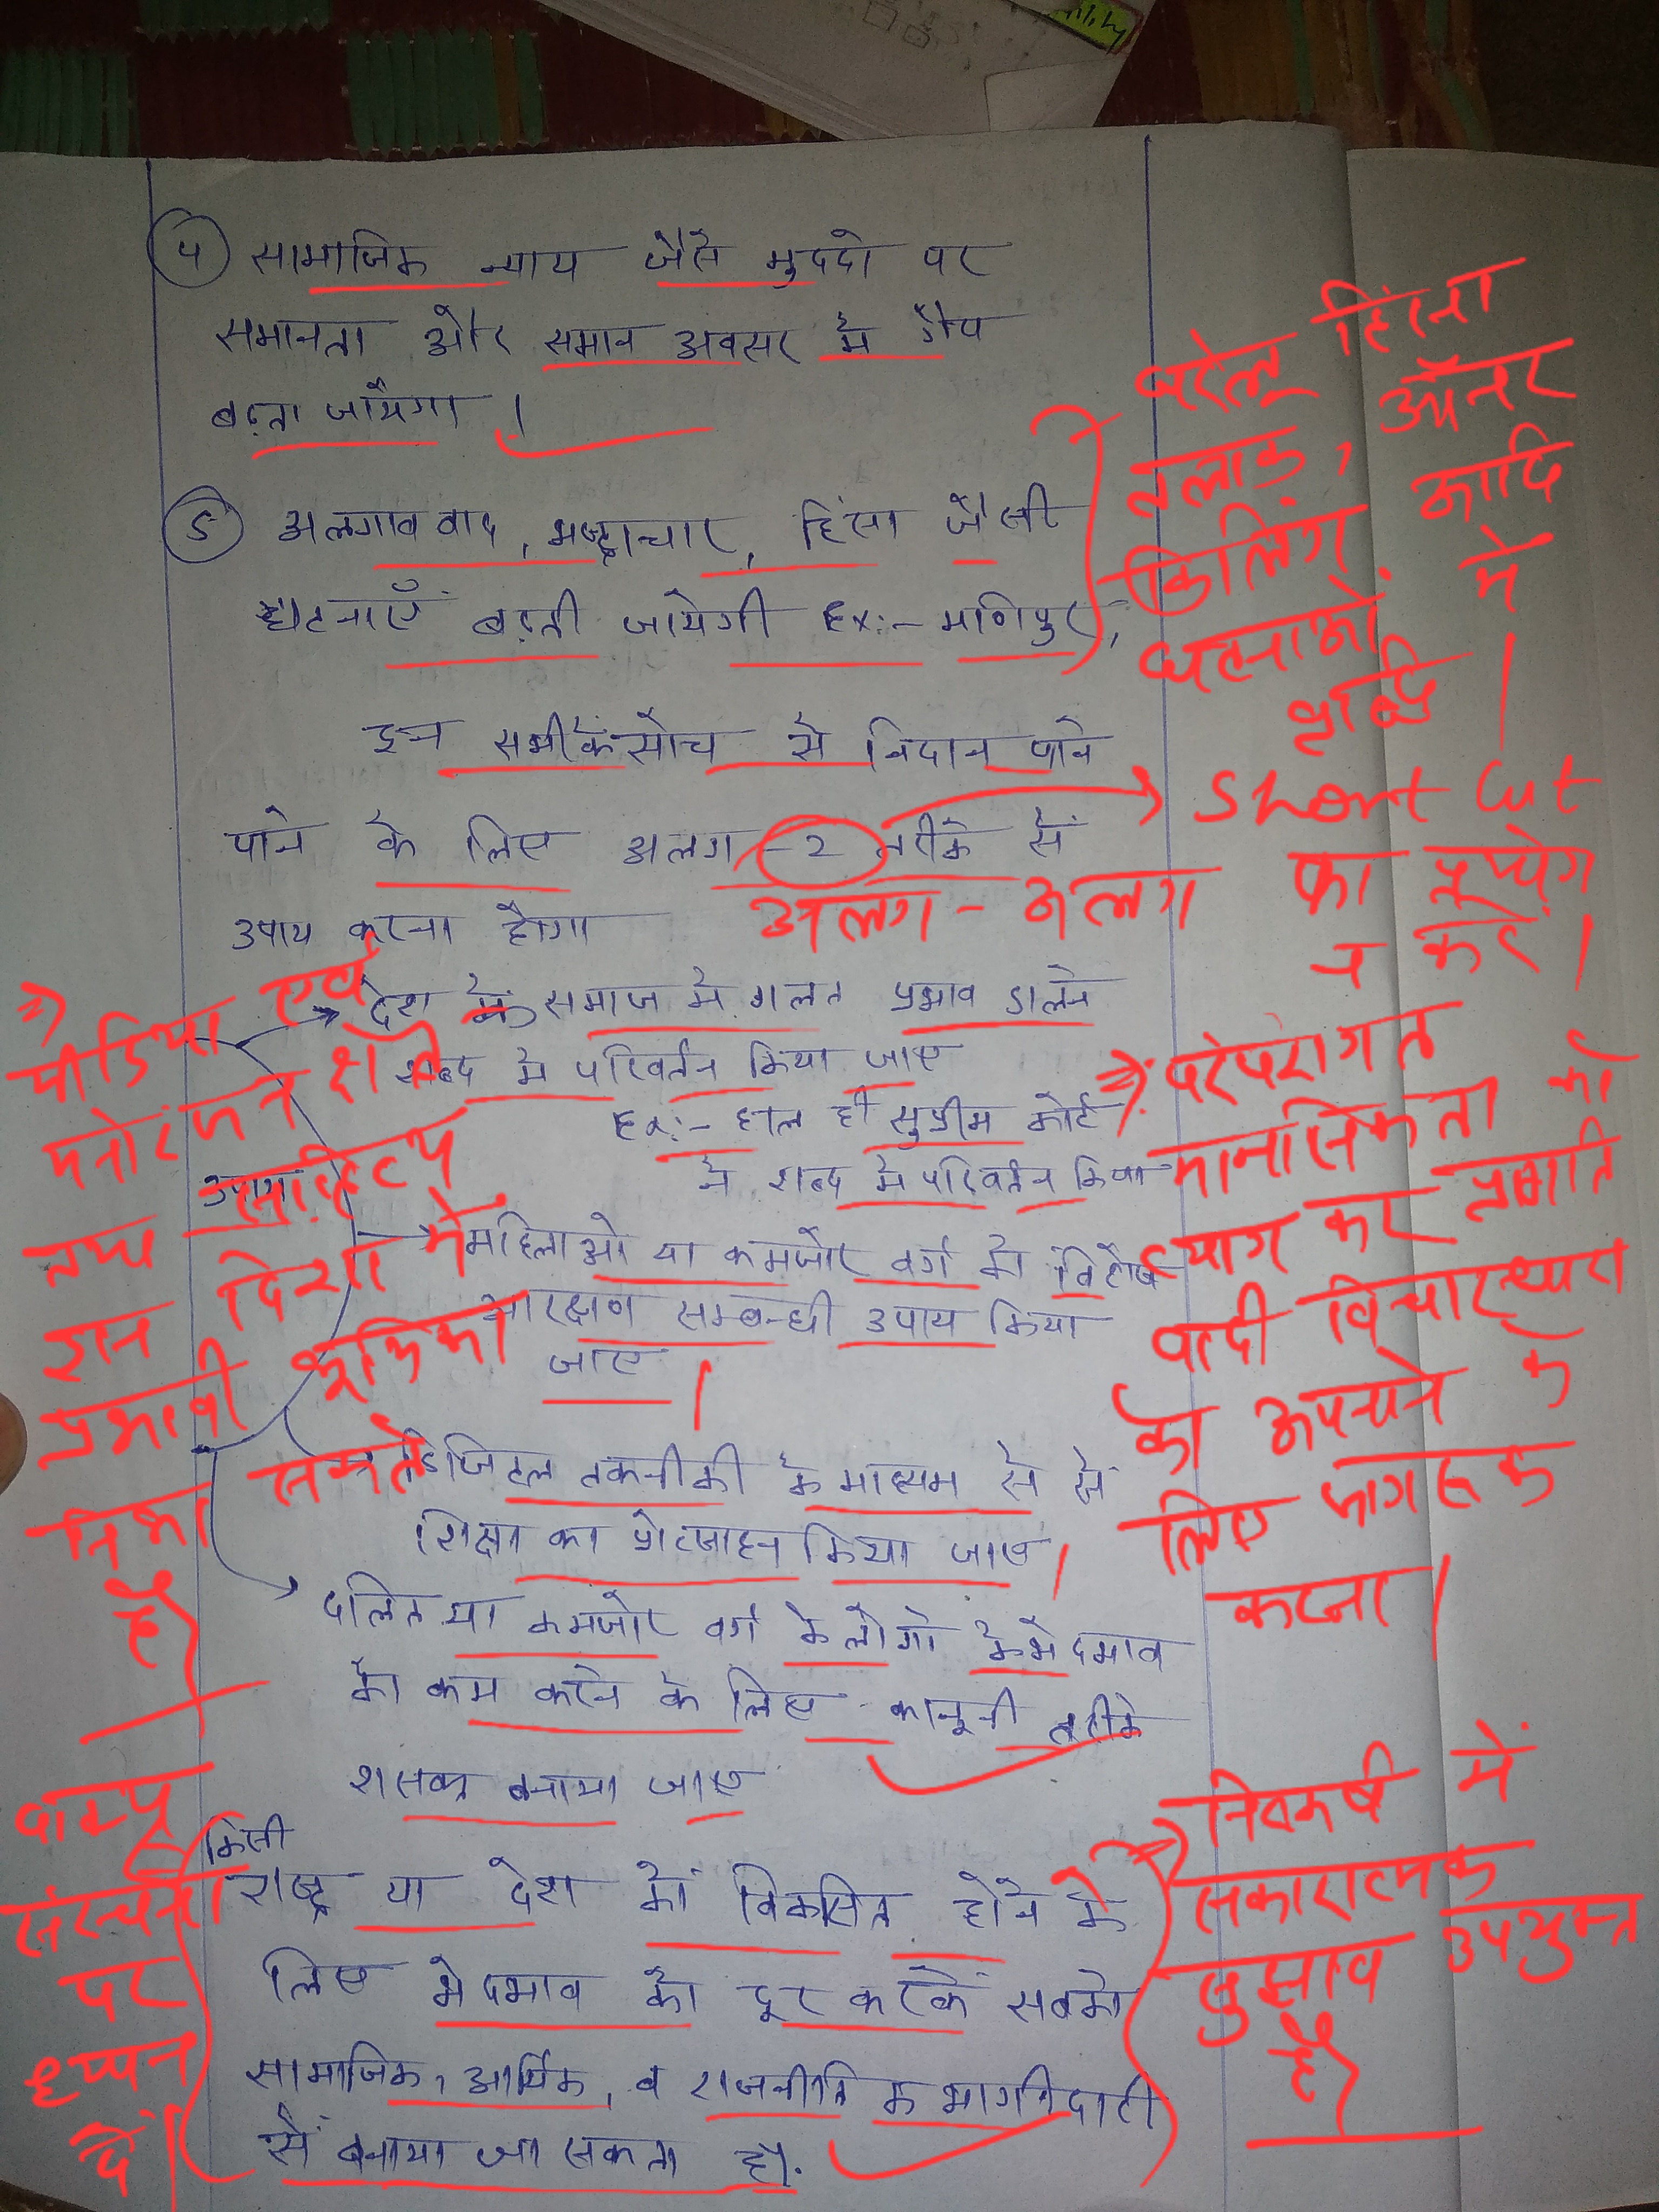 ४ सामाजिक न्याय जैसे मुददो पर
समानता और समान अवसर मे गैप
बढ़ता जायेगा ।
5 अलगाववाद, भ्रष्टाचार, हिंसा जैसी
घटनाएँ बढ़ती जायेगी Ex:- मणिपुर,
घरेलू हिंसा
तलाक, ऑनर
किलिंग आदि
घटनाओं में
वृद्धि ।
इन सभी के सोच से निदान पाने
पाने के लिए अलग-2 तरीके से
Short Cut
का प्रयोग
न करें ।
अलग-अलग
उपाय करना होगा
देश के समाज मे गलत प्रभाव डालने
शब्द मे परिवर्तन किया जाए
Ex:- हाल ही सुप्रीम कोर्ट
ने शब्द मे परिवर्तन किया
उपाय
महिलाओ या कमजोर वर्ग को विशेष
आरक्षण सम्बन्धी उपाय किया
जाए ।
डिजिटल तकनीकी के माध्यम से से
शिक्षा का प्रोत्साहन किया जाए ।
दलित या कमजोर वर्ग के लोगो के भेदभाव
को कम करने के लिए कानूनी तरीके
शसक्त बनाया जाए
⇒ मीडिया एवं
मनोरंजन क्षेत्र
तथा साहित्य
इस दिशा में
प्रभावी भूमिका
निभा सकते
हैं
⇒ परंपरागत
मानसिकता को
त्याग कर प्रगति
वादी विचारधारा
को अपनाने के
लिए जागरूक
करना ।
किसी
राष्ट्र या देश को विकसित होने के
लिए भेदभाव को दूर करके सबको
सामाजिक, आर्थिक, व राजनीति के भागीदारी
से बनाया जा सकता है।
वाक्य
संरचना
पर
ध्यान
दें।
⇒ निष्कर्ष में
सकारात्मक
सुझाव उपयुक्त
है